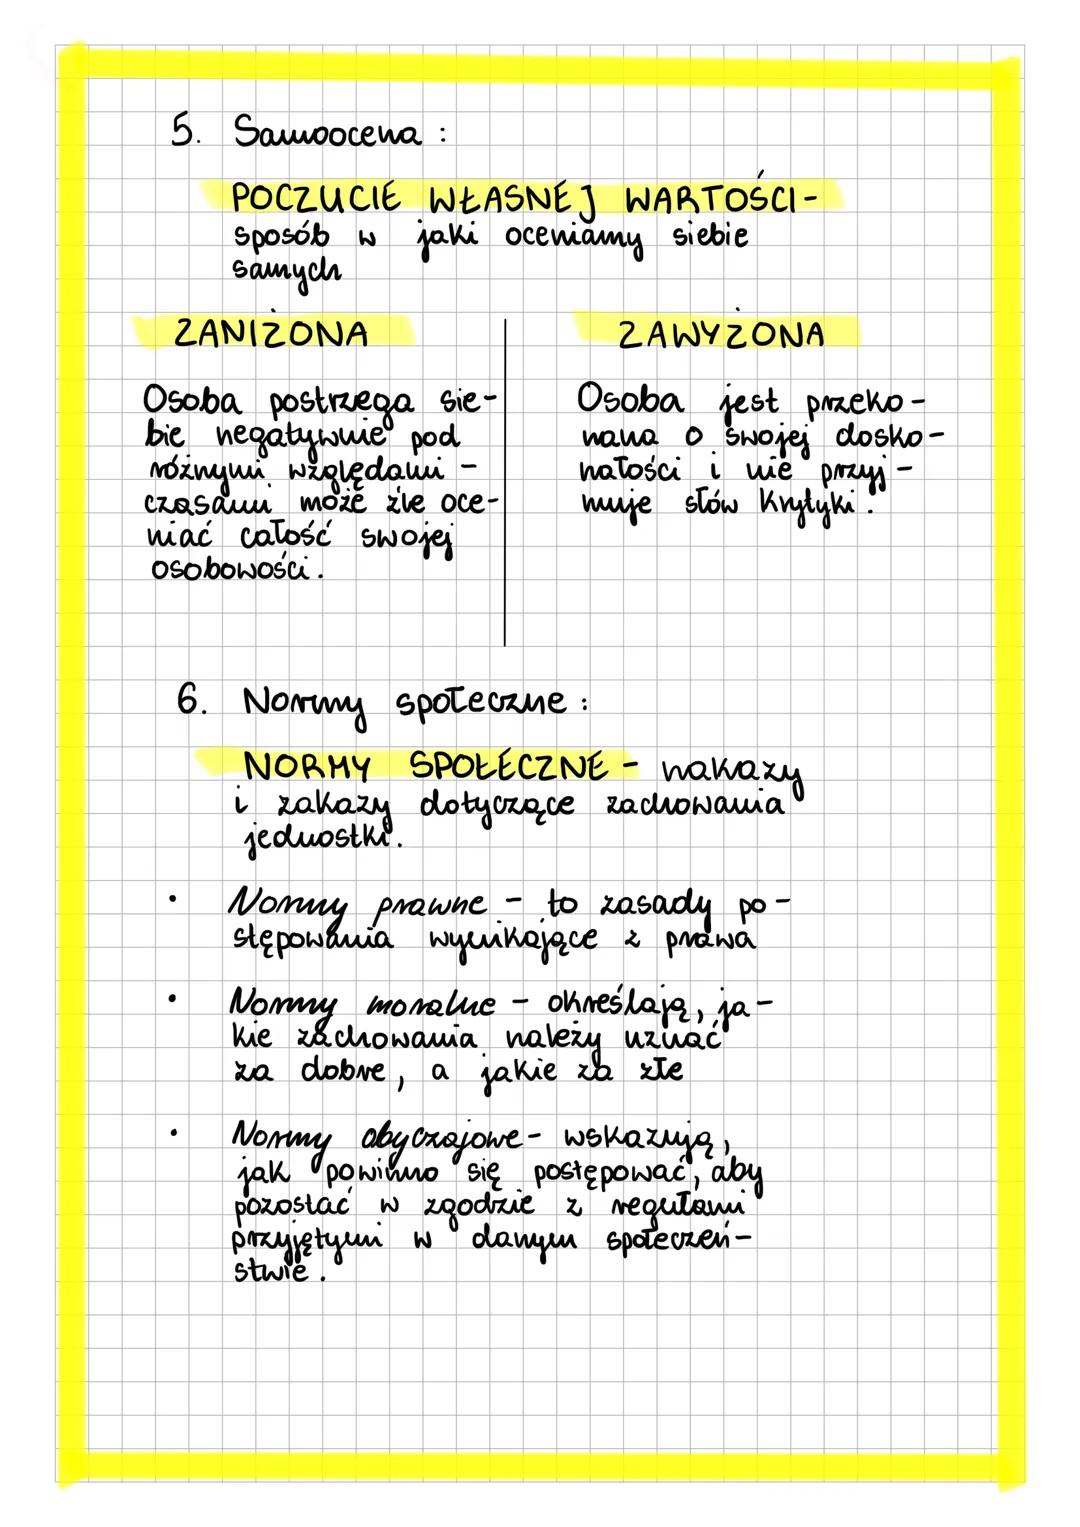 5. Samoocena :
POCZUCIE WŁASNEJ WARTOŚCI -
sposób w jaki oceniamy siebie
samych
ZANIŻONA
Osoba postrzega sie-
bie negatywnie pod
różnymi względami -
czasami może źle oce-
niać całość swojej
osobowości.
ZAWYŻONA
Osoba jest przeko-
nana o swojej dosko-
nałości i nie przyj-
muje słów krytyki.
6. Normy społeczne :
NORMY SPOŁECZNE - nakazy
i zakazy dotyczące zachowania
jednostki.
• Normy prawne - to zasady po-
stępowania wynikające z prawa
• Normy moralne - określają, ja-
kie zachowania należy uznać
za dobre, a jakie za złe
• Normy obyczajowe - wskazują,
jak powinno się postępować, aby
pozostać w zgodzie z regułami
przyjętymi w danym społeczeń-
stwie.